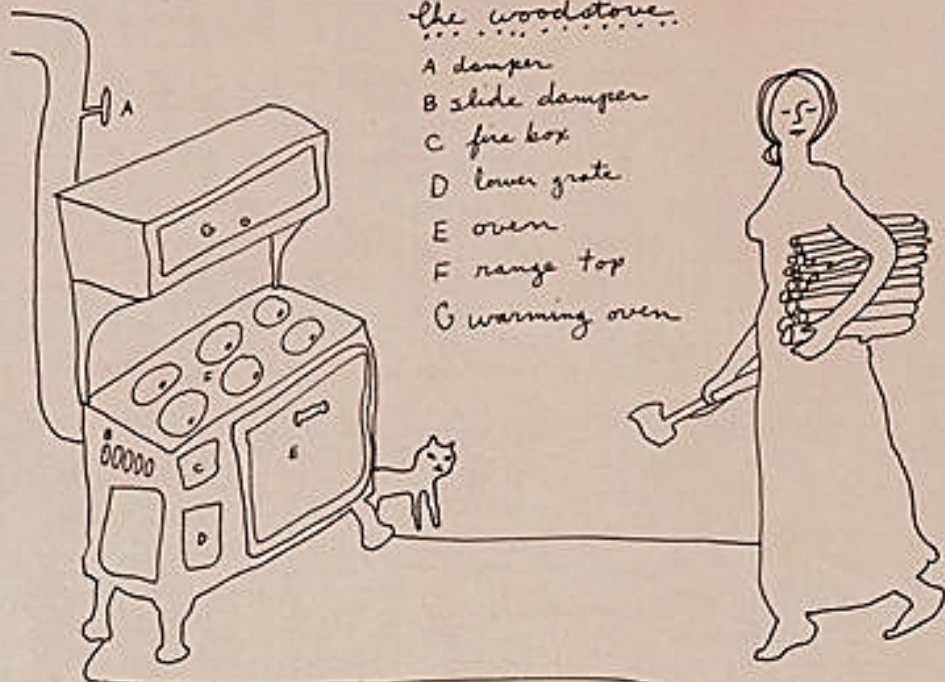 the woodstove
A damper
B slide damper
C fire box
D lower grate
E oven
F range top
G warming oven
A
G
F
B
C
E
D